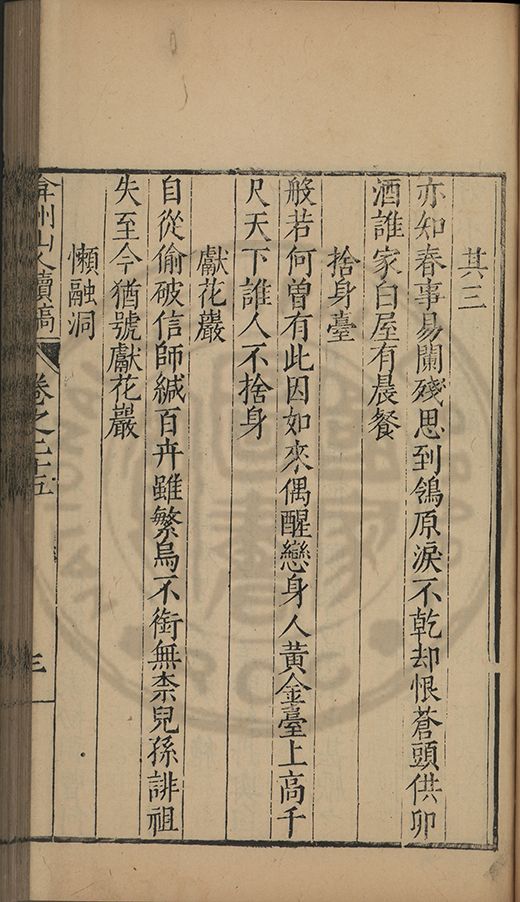 其三
亦知春事易闌殘思到鴒原淚不乾却恨蒼頭供卯
酒誰家白屋有晨餐
捨身臺
般若何曾有此因如來偶醒戀身人黃金臺上高千
尺天下誰人不捨身
獻花巖
自從偷破信師緘百卉雖繁鳥不銜無柰兒孫誹祖
失至今猶號獻花巖
懶融洞
弇州山人續稿
卷之二十五
三